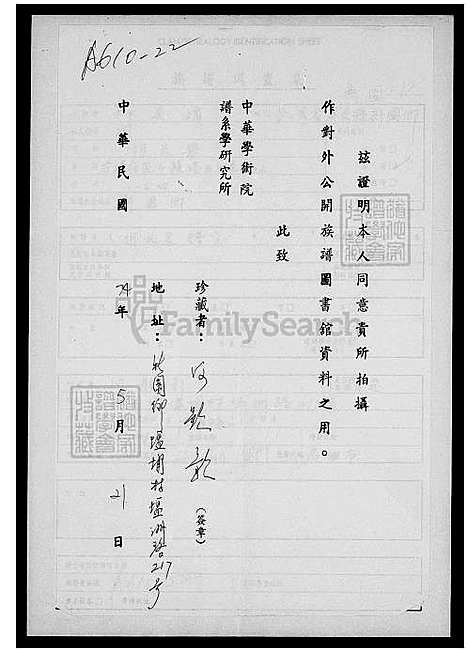 A610-22
茲證明本人同意貴所拍攝
作對外公開族譜圖書館資料之用。
此致
中華學術院
譜系學研究所
珍藏者：何
(簽章)
地址：新園鄉塩埔村塩洲路217号
中華民國
74年5月21日
FamilySearch